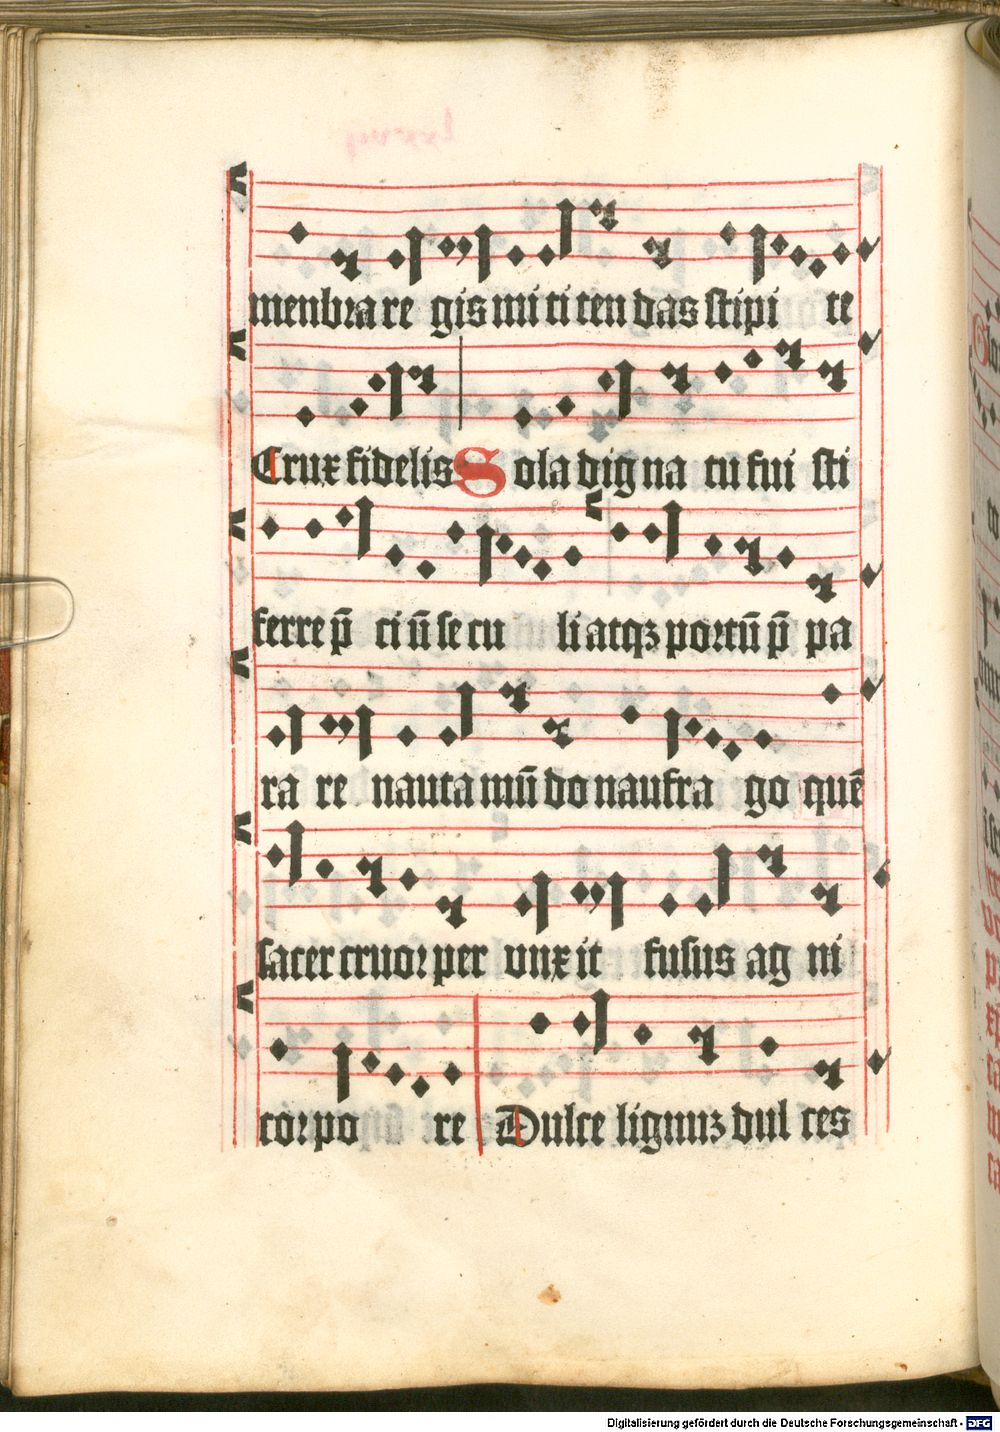 menbra re gis mi ti ten das stipi te
Crux fidelis Sola dig na tu fui sti
ferre p̄ ci ū se cu li atqꝫ portū p̄ pa
ra re nauta mū do naufra go quē
sacer cruor per unx it fusus ag ni
cor po re Dulce lignuꝫ dul ces
Digitalisierung gefördert durch die Deutsche Forschungsgemeinschaft - DFG